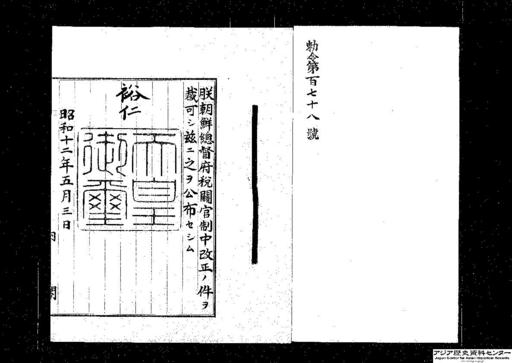 勅令第百七十八號
朕朝鮮總督府税關官制中改正ノ件ヲ
裁可シ玆ニ之ヲ公布セシム
裕仁
天皇
御璽
昭和十二年五月三日
内閣
アジア歴史資料センター
Japan Center for Asian Historical Records